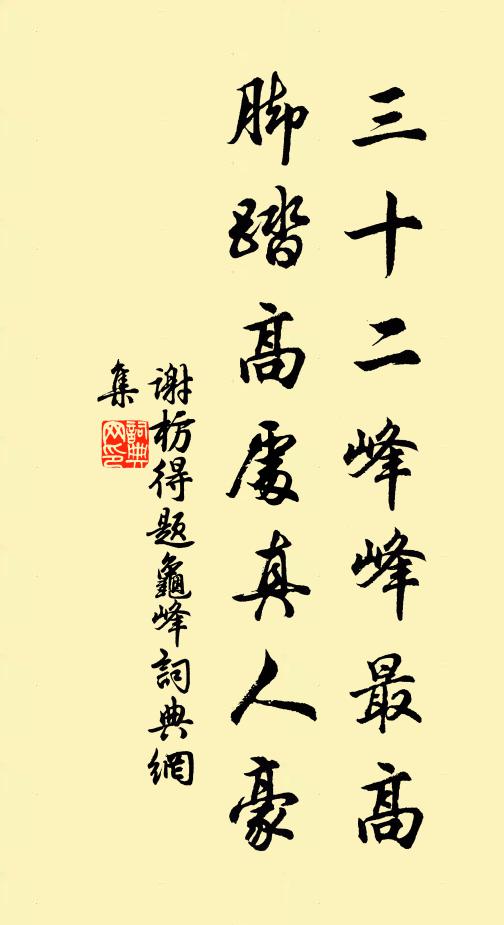 三十二峰峰最高
脚踏高處真人豪
谢枋得题龜峰詞典網
集
詞典网印